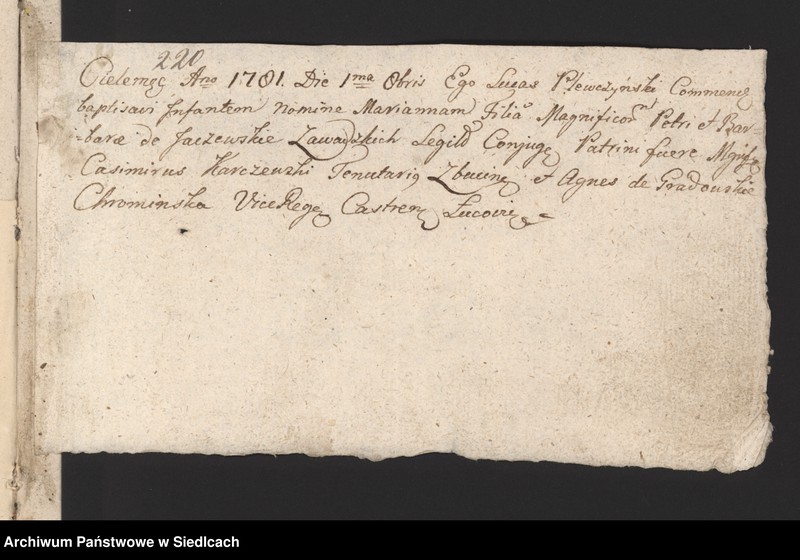 220
Cielemęc Ano 1781. Die 1ma 8bris Ego Lucas Plewczyński Commend
baptisavi Infantem Nomine Mariannam Filia Magnificorum Petri et Bar-
-bara de Jaczewskie Zawadzkich Legit Conjug Patrini fuere Mgnf
Casimirus Karczewski Tenutariq Zbucinę et Agnes de Gradowskie
Chrominska ViceRegę Castren Łucovię
Archiwum Państwowe w Siedlcach